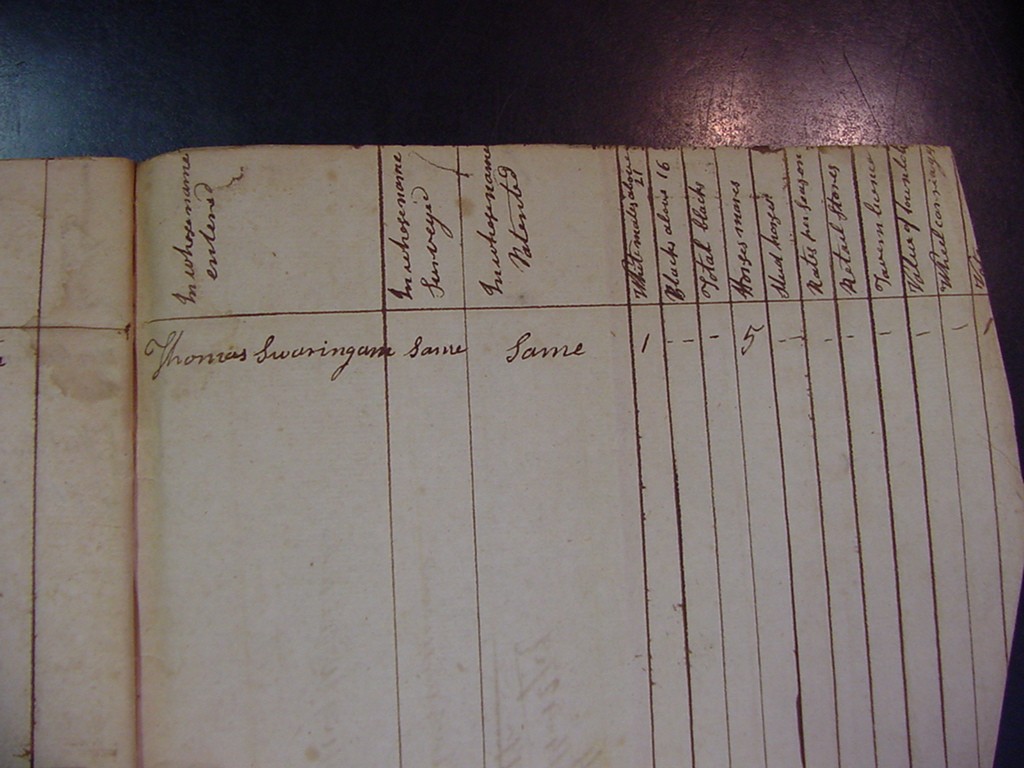 In whose name
entered
In whose name
Surveyd
In whose name
Patented
White males above
21
Blacks above 16
Total blacks
Horses mares
Stud horses
Rates per season
Retail Stores
Tavern licence
Value of
Wheel carriage
Thomas Swaringam Same Same 1 - - 5 - - - - - -